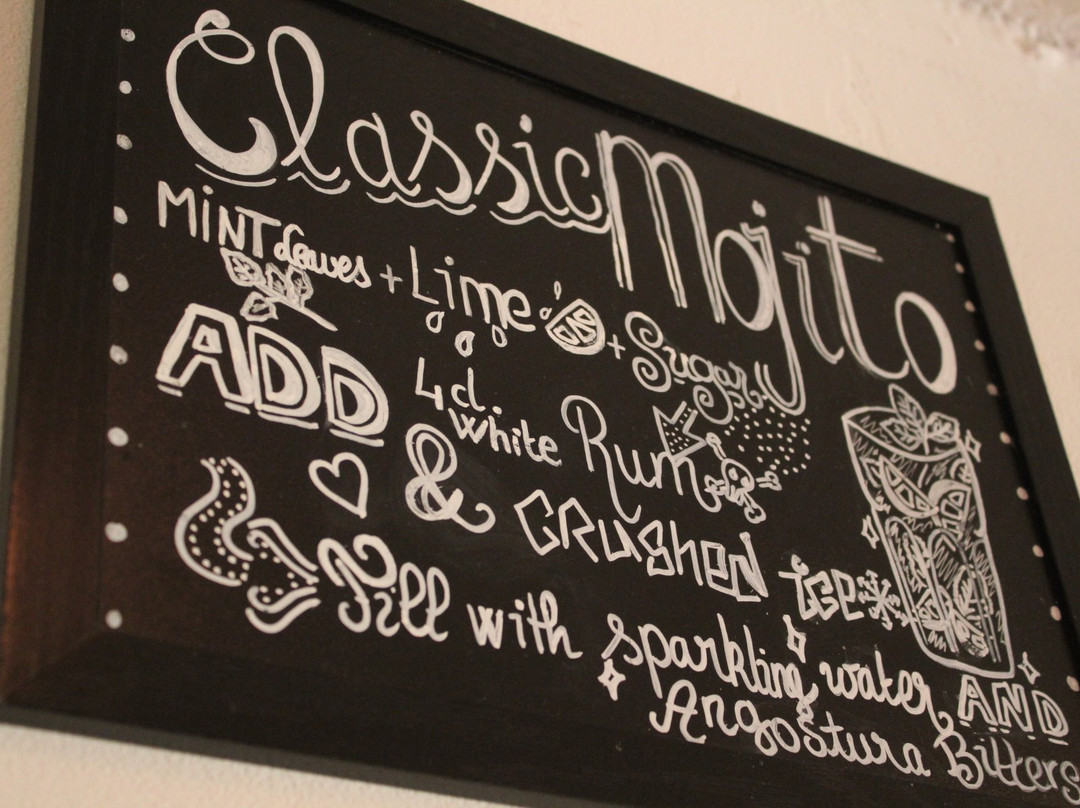 Classic Mojito
MINT Leaves + Lime + Sugar
ADD 4cl. white Rum
& CRUSHED ICE
Fill with sparkling water AND
Angostura Bitters